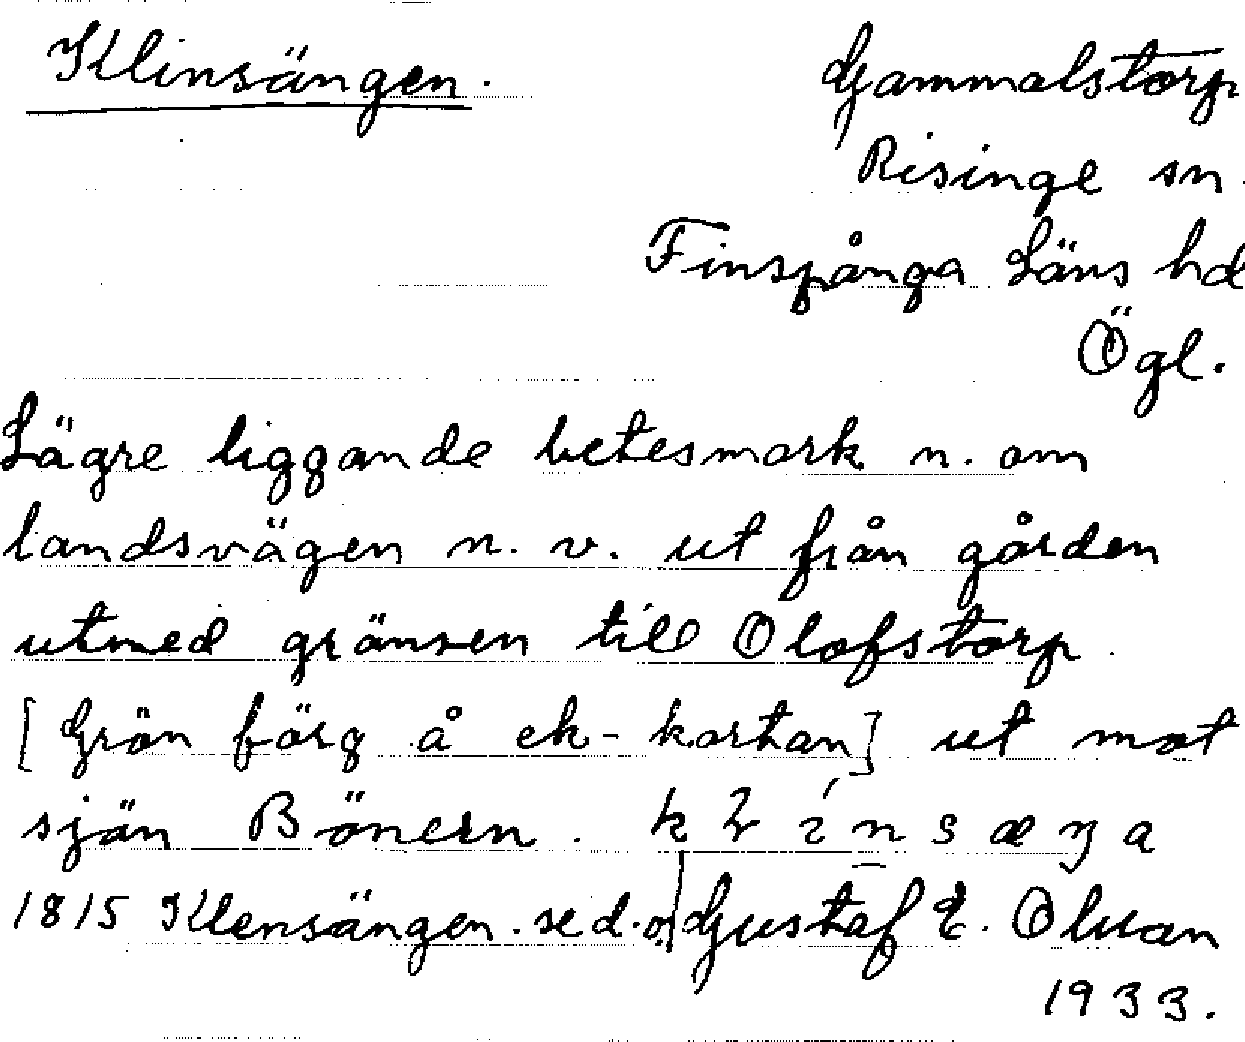 Klinsängen. Gammalstorp
Risinge sn.
Finspånga Läns hd
Ögl.
Lägre liggande betesmark n. om
landsvägen n. v. ut från gården
utmed gränsen till Olofstorp.
[Grön färg å ek-kartan] ut mot
sjön Bönern.
1815 Klensängen. se d. o. Gustaf E. Olson
1933.